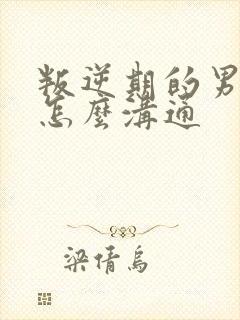 叛逆期的男
怎麼溝通
梁倩烏